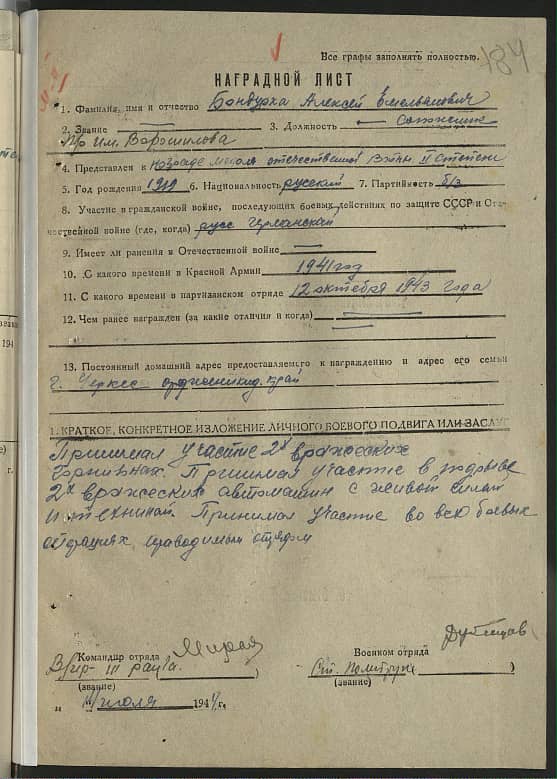 Все графы заполнять полностью.
184
НАГРАДНОЙ ЛИСТ
1. Фамилия, имя и отчество Бондурка Алексей Емельянович
2. Звание 3. Должность
П/о им. Ворошилова
4. Представлен к отечественной войны II степени
5. Год рождения 1919 6. Национальность русский 7. Партийность б/п
8. Участие в гражданской войне, последующих боевых действиях по защите СССР и Оте-
чественной войне (где, когда) русс Германской
9. Имеет ли ранения в Отечественной войне
10. С какого времени в Красной Армии 1941 год
11. С какого времени в партизанском отряде 12 октября 1943 года
12. Чем ранее награжден (за какие отличия и когда)
13. Постоянный домашний адрес предоставляемого к награждению и адрес его семьи
г. Черкес орджоникид. край
1. КРАТКОЕ, КОНКРЕТНОЕ ИЗЛОЖЕНИЕ ЛИЧНОГО БОЕВОГО ПОДВИГА ИЛИ ЗАСЛУГ
Принимал участие 2х вражеских
Принимал участие в подрыве
2х вражеских автомашин с живой силой
и техникой. Принимал участие во всех боевых
операциях проводимых отрядом
Командир отряда Военком отряда
III ранга ( ) Ст. Политрук ( )
(звание) (звание)
" июля 1944 г.